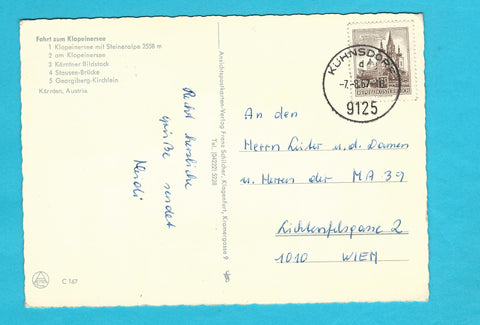 Fahrt zum Klopeinersee
1 Klopeinersee mit Steineralpe 2558 m
2 am Klopeinersee
3 Kärntner Bildstock
4 Stausee-Brücke
5 Georgiberg-Kirchlein
Kärnten, Austria
Recht herzliche
Grüße sendet
Ansichtspostkarten-Verlag Franz Schilcher, Klagenfurt, Kramergasse 9
Tel. (04222) 5928
KÜHNSDORF
-7.-8.67
9125
REPUBLIK ÖSTERREICH
An den
Herrn Leiter u. d. Damen
u. Herren der MA 39
Lichtenfelsgasse 2
1010 WIEN
C 167